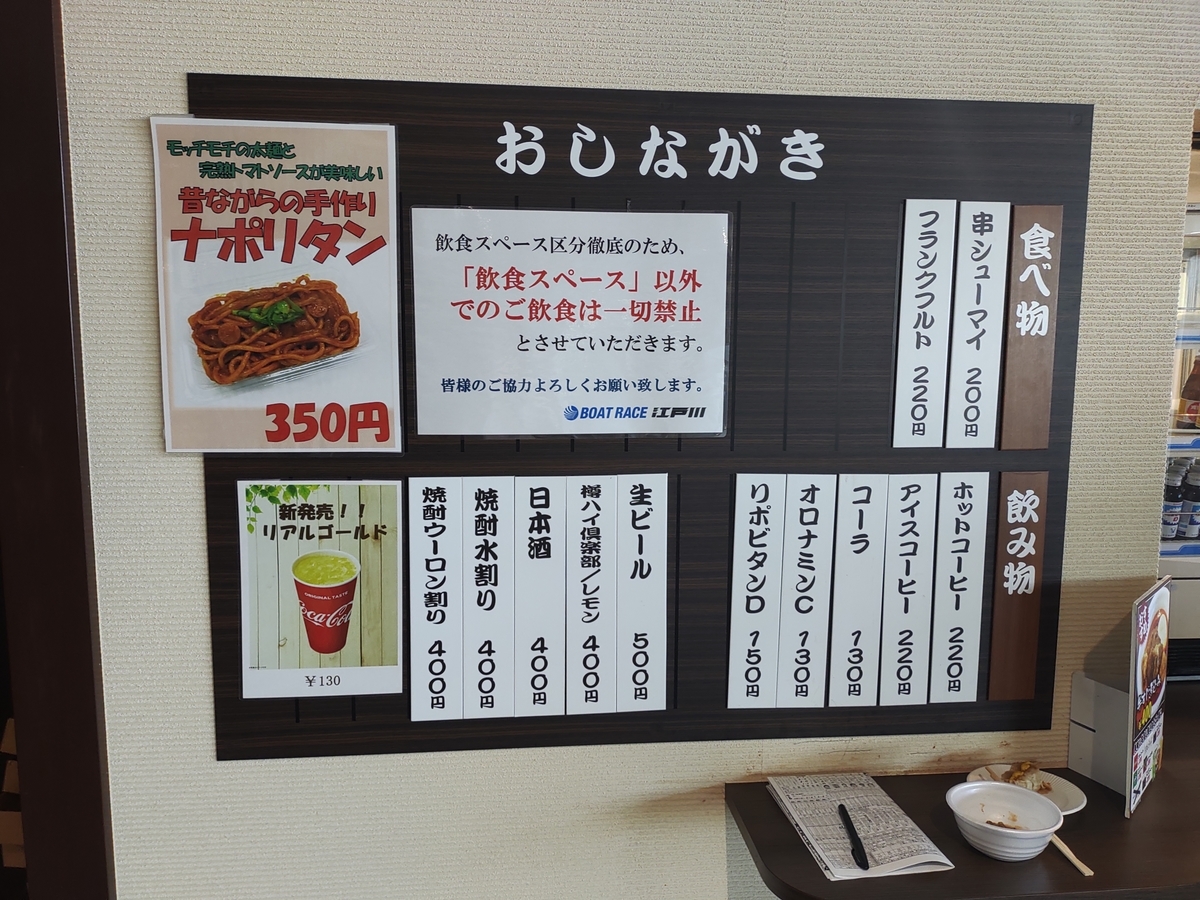 おしながき
モッチモチの太麺と
完熟トマトソースが美味しい
昔ながらの手作り
ナポリタン
350円
飲食スペース区分徹底のため、
「飲食スペース」以外
でのご飲食は一切禁止
とさせていただきます。
皆様のご協力よろしくお願い致します。
BOAT RACE 江戸川
食べ物
串シューマイ 200円
フランクフルト 220円
飲み物
ホットコーヒー 220円
アイスコーヒー 220円
コーラ 130円
オロナミンC 130円
リポビタンD 150円
生ビール 500円
樽ハイ倶楽部/レモン 400円
日本酒 400円
焼酎水割り 400円
焼酎ウーロン割り 400円
新発売！！
リアルゴールド
ORIGINAL TASTE
Coca-Cola
￥130